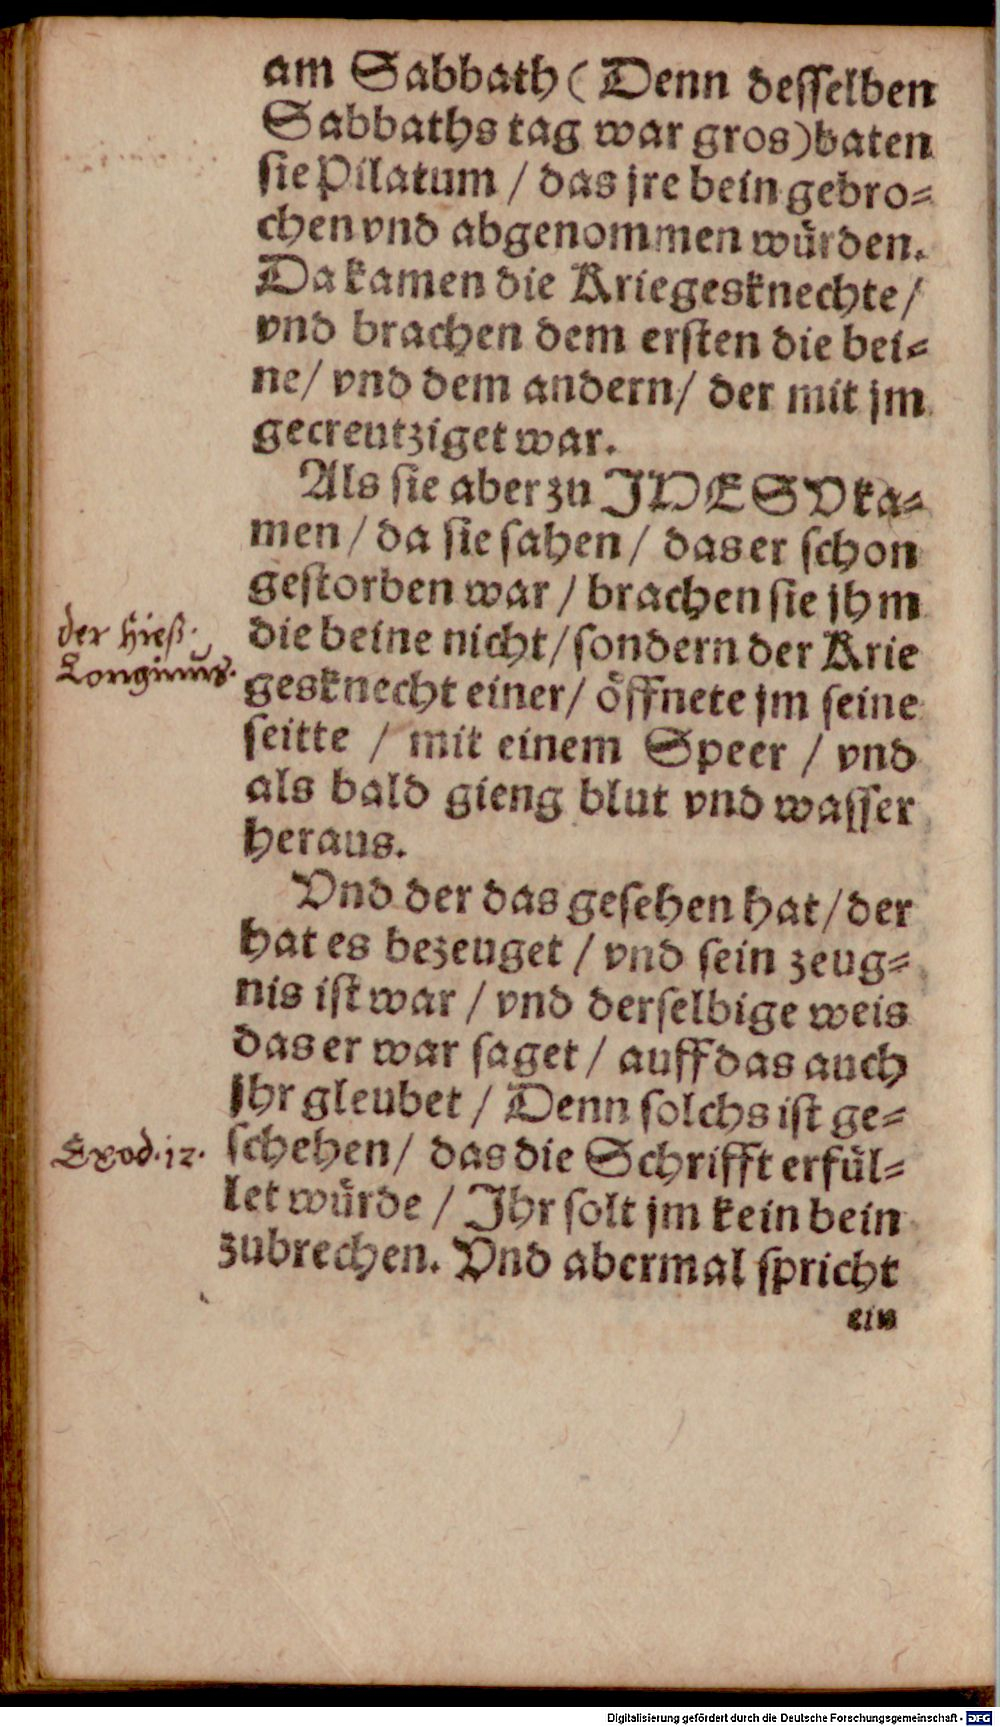 am Sabbath (Denn desselben
Sabbaths tag war gros) baten
sie Pilatum / das jre bein gebro⸗
chen vnd abgenommen würden.
Da kamen die Kriegesknechte /
vnd brachen dem ersten die bei⸗
ne / vnd dem andern / der mit jm
gecreutziget war.
Als sie aber zu JHESV ka⸗
men / da sie sahen / das er schon
gestorben war / brachen sie jhm
der hieß.
die beine nicht / sondern der Krie
Longinus.
gesknecht einer / öffnete jm seine
seitte / mit einem Speer / vnd
als bald gieng blut vnd wasser
heraus.
Vnd der das gesehen hat / der
hat es bezeuget / vnd sein zeug⸗
nis ist war / vnd derselbige weis
das er war saget / auff das auch
jhr gleubet / Denn solchs ist ge⸗
Exod. 12.
schehen / das die Schrifft erfül⸗
let würde / Jhr solt jm kein bein
zubrechen. Vnd abermal spricht
ein
Digitalisierung gefördert durch die Deutsche Forschungsgemeinschaft - DFG